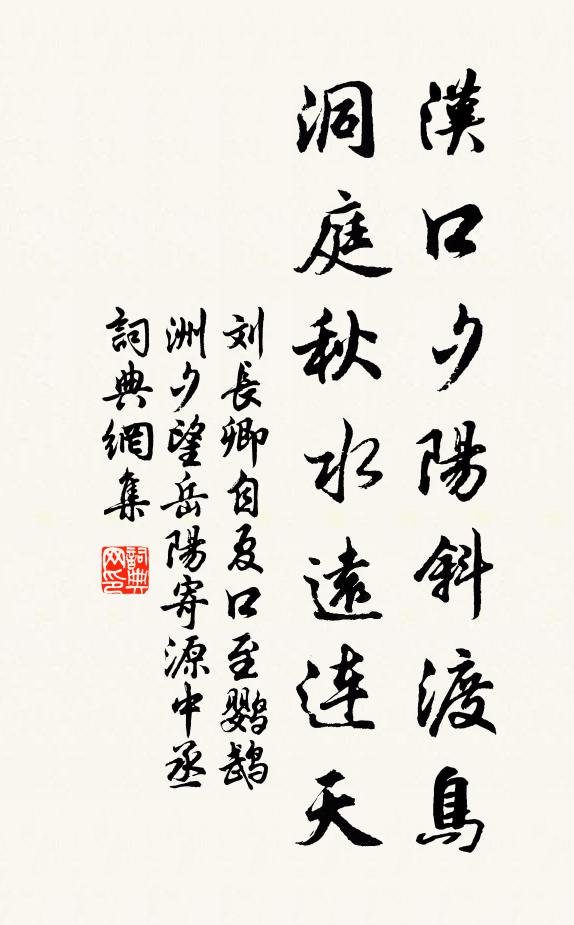 漢口夕陽斜渡鳥
洞庭秋水遠連天
刘長卿自夏口至鸚鵡
洲夕望岳陽寄源中丞
詞典網集
詞典网印